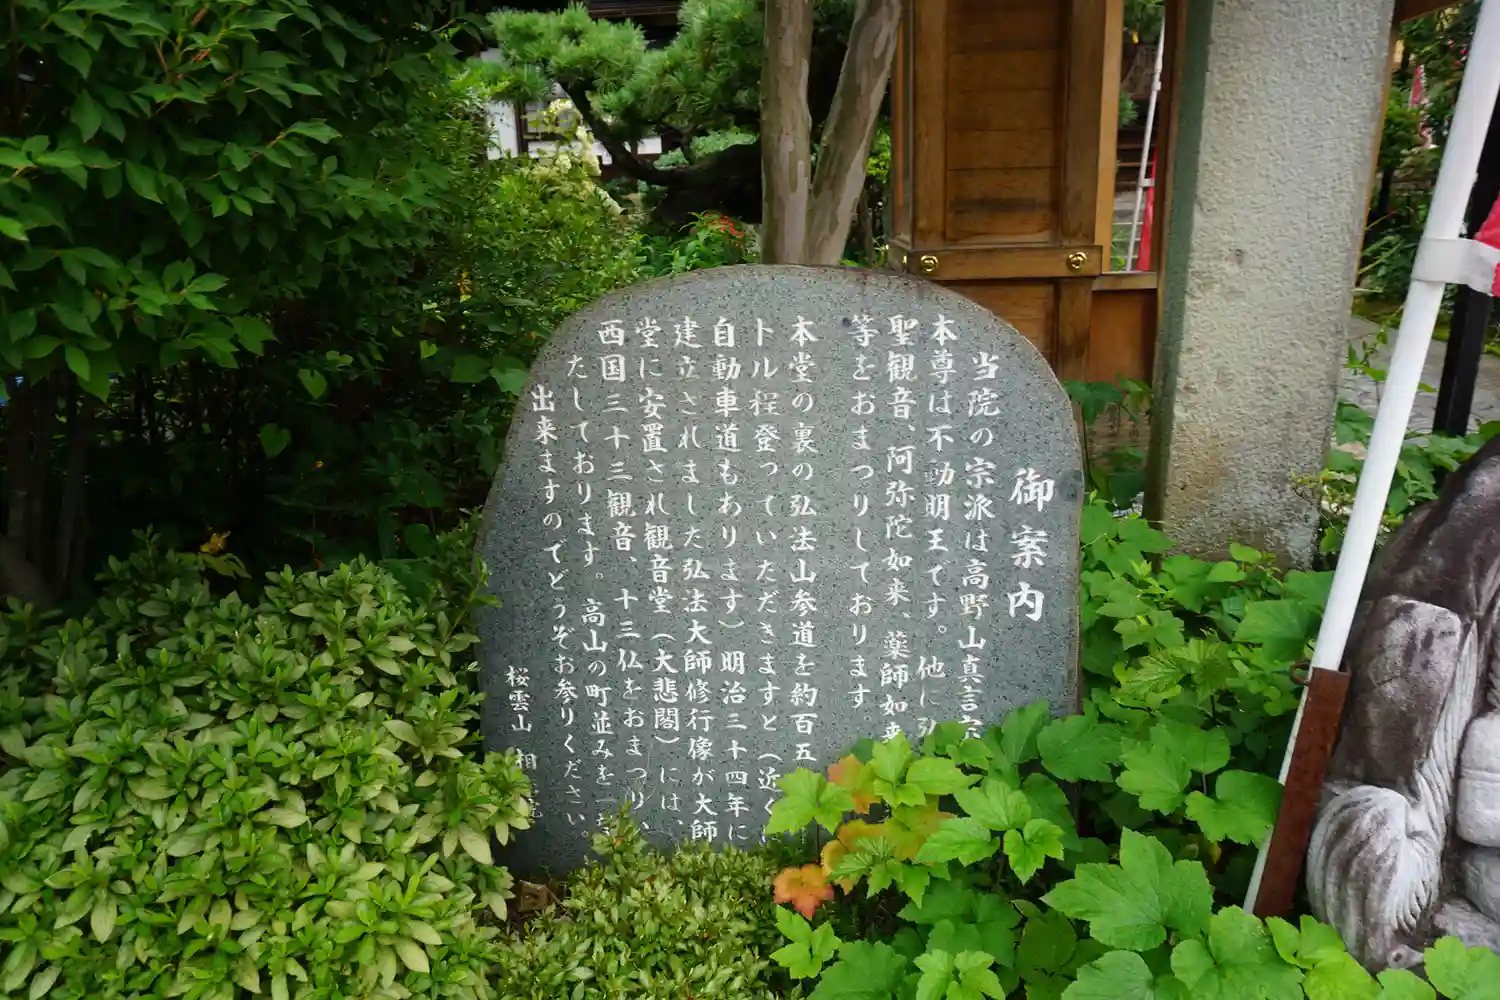 御案内
当院の宗派は高野山真言
本尊は不動明王です。他に
聖観音、阿弥陀如来、薬師如来
等をおまつりしております。
本堂の裏の弘法山参道を約百五
トル程登っていただきますと（近く
自動車道もあります）明治三十四年に
建立されました弘法大師修行像が大師
堂に安置され観音堂（大悲閣）には、
西国三十三観音、十三仏をおまつりい
たしております。高山の町並みを一
出来ますのでどうぞお参りください。
桜雲山 相